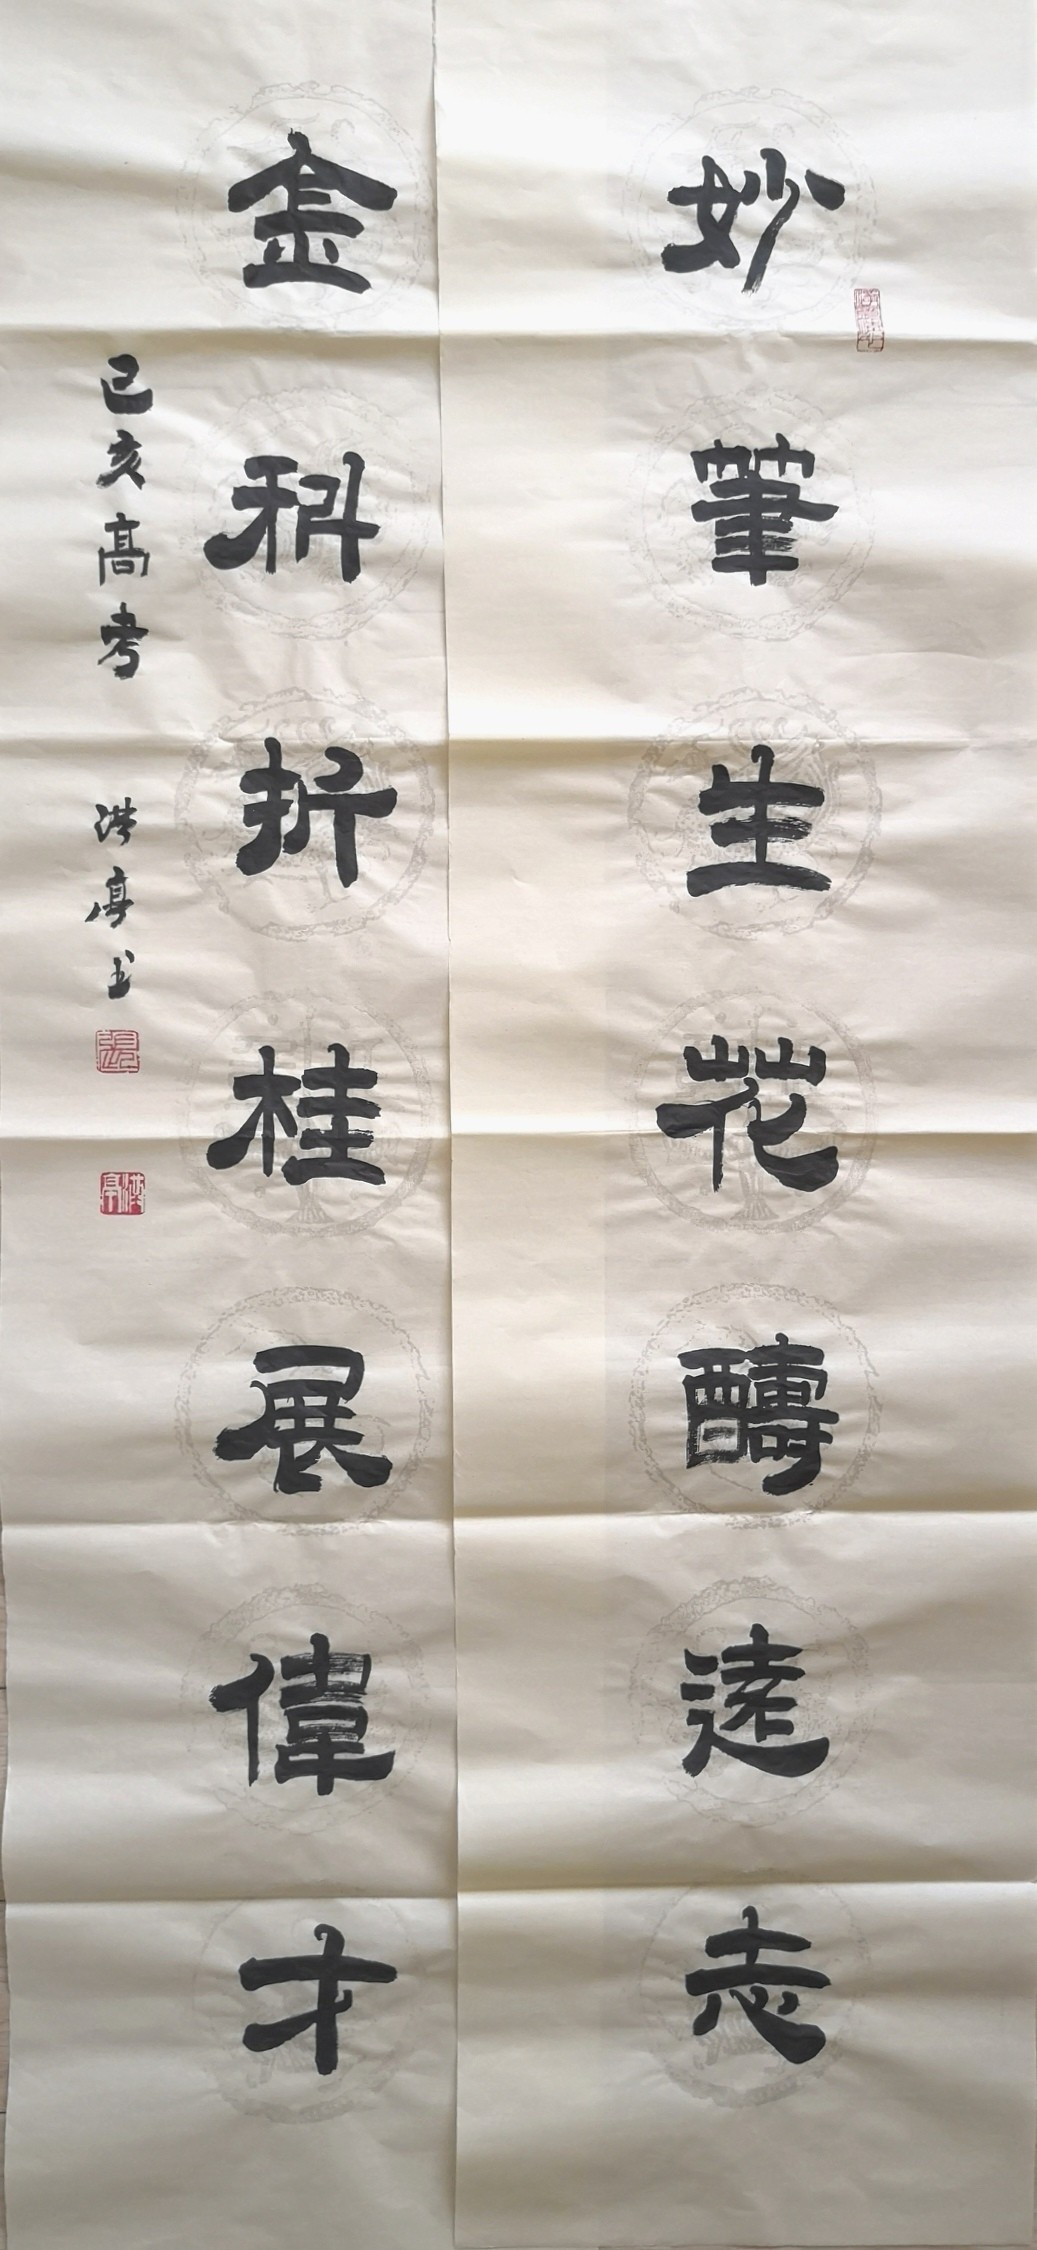 妙筆生花醻遠志
金科折桂展偉才
己亥高考
洪亭书
張
洪亭